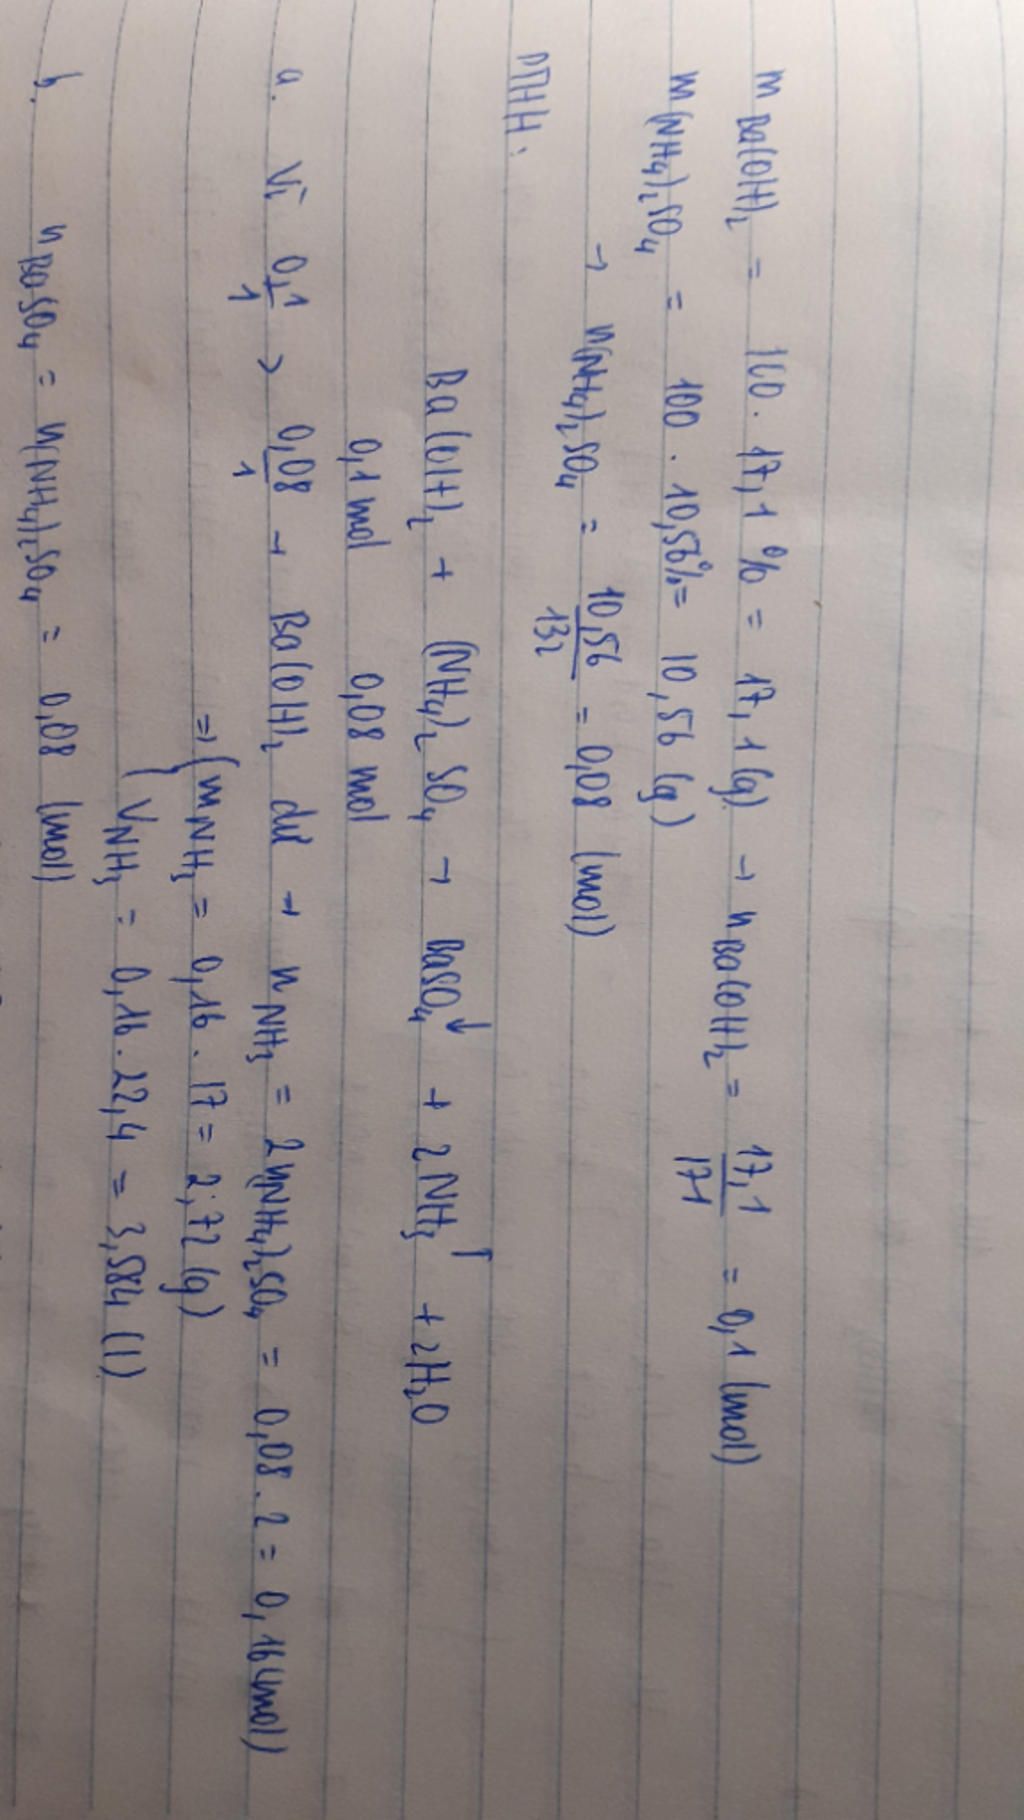 m Ba(OH)₂ = 100 . 17,1 % = 17,1 (g) → n Ba(OH)₂ = 17,1/171 = 0,1 (mol)
m (NH₄)₂SO₄ = 100 . 10,56% = 10,56 (g)
→ n(NH₄)₂SO₄ = 10,56/132 = 0,08 (mol)
PTHH:
Ba(OH)₂ + (NH₄)₂SO₄ → BaSO₄↓ + 2NH₃↑ + 2H₂O
0,1 mol 0,08 mol
a. Vì 0,1/1 > 0,08/1 → Ba(OH)₂ dư → n NH₃ = 2n(NH₄)₂SO₄ = 0,08 . 2 = 0,16 (mol)
⇒ { m NH₃ = 0,16 . 17 = 2,72 (g)
{ V NH₃ = 0,16 . 22,4 = 3,584 (l)
b. n BaSO₄ = n(NH₄)₂SO₄ = 0,08 (mol)